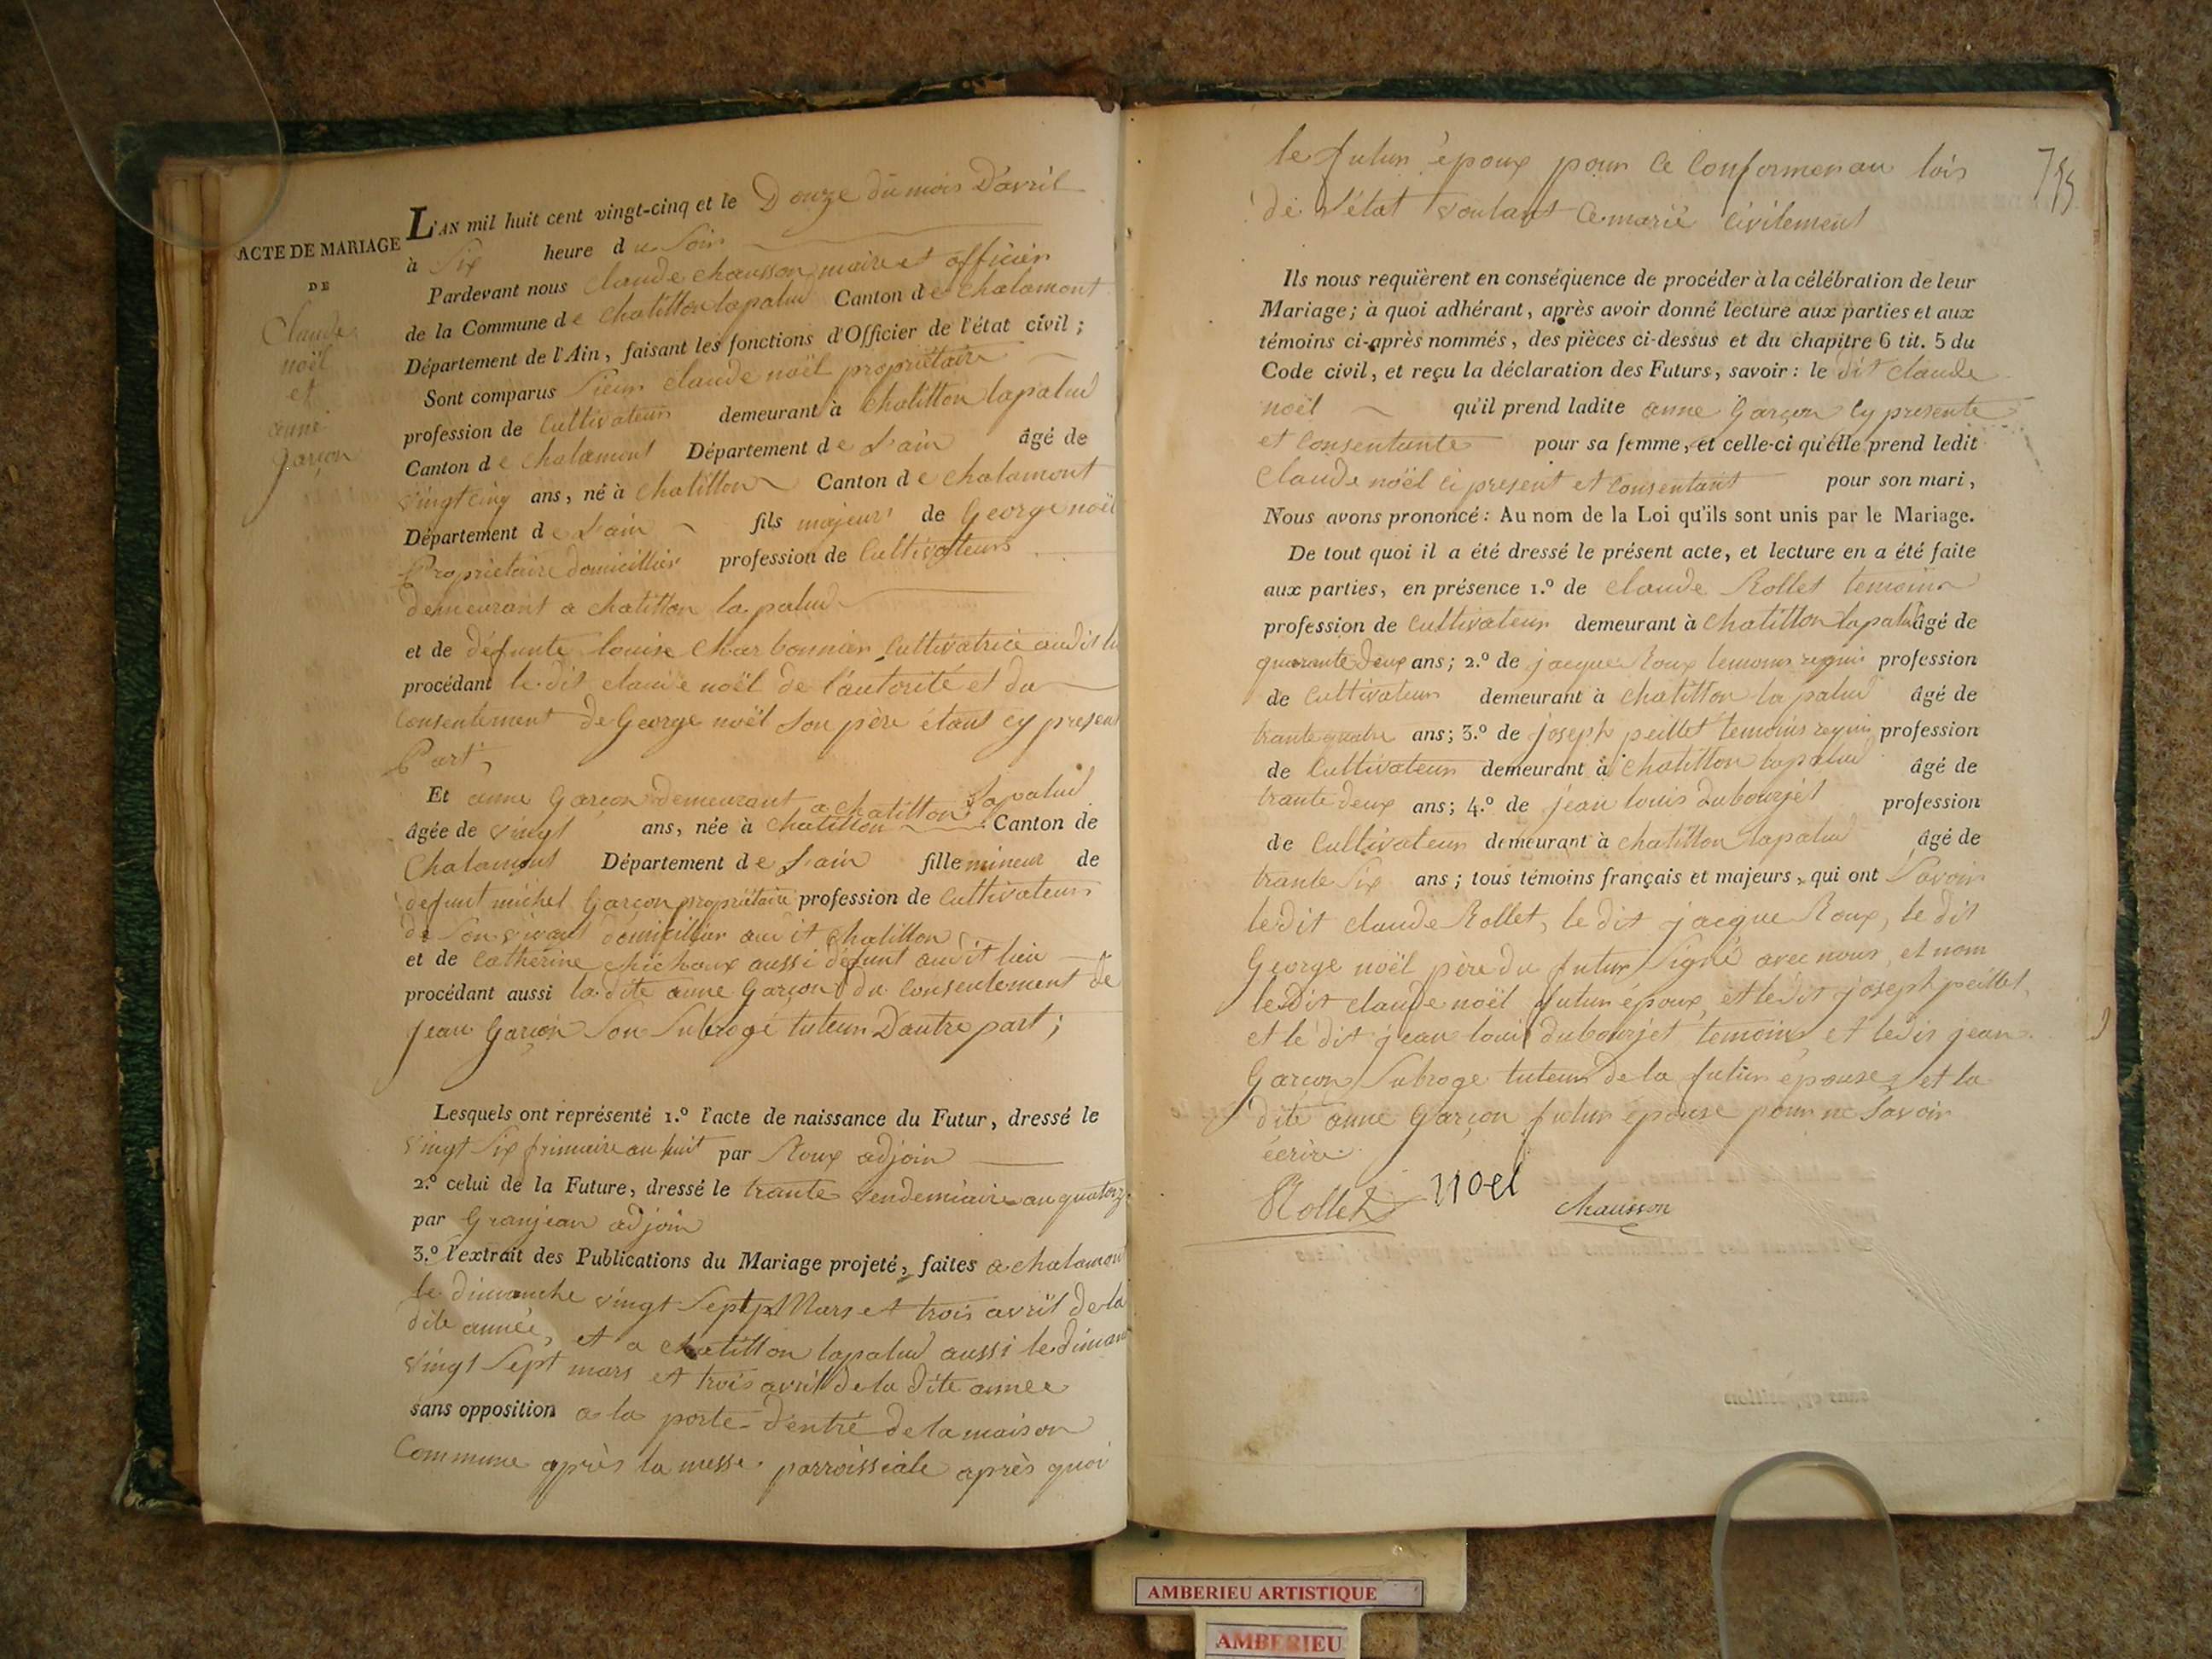 ACTE DE MARIAGE
DE
Claude
noël
et
anne
garçon
L'AN mil huit cent vingt-cinq et le Douze du mois D'avril
à Six heure du Soir
Pardevant nous Claude chausson maire et officier
de la Commune de Chatillon lapalud Canton de Chalamont
Département de l'Ain, faisant les fonctions d'Officier de l'état civil ;
Sont comparus Sieur claude noël propriétaire
profession de Cultivateur demeurant à Chatillon lapalud
Canton de Chalamont Département de L'ain âgé de
vingt cinq ans, né à Chatillon Canton de Chalamont
Département de L'ain fils majeur de George noël
Propriétaire domicillier profession de Cultivateur
demeurant a chatillon la palud
et de défunte louise Charbonnier Cultivatrice audit
procédant le dit claude noël de l'autorité et du
Consentement de George noël Son père étant cy present
Part,
Et anne Garçon demeurant a chatillon Lapalud
âgée de vingt ans, née à Chatillon Canton de
Chalamont Département de L'ain fille mineur de
defunt michel Garçon propriétaire profession de Cultivateur
de Son vivant domicillier audit chatillon
et de Catherine aussi défunt audit lieu
procédant aussi la dite anne Garçon du Consentement de
Jean Garçon Son Subrogé tuteur D'autre part ;
Lesquels ont représenté 1.º l'acte de naissance du Futur, dressé le
vingt Six frimaire an huit par Roux adjoin
2.º celui de la Future, dressé le trante vendemiaire an quatorze
par Granjean adjoin
3.º l'extrait des Publications du Mariage projeté, faites a chalamont
le dimanche vingt Sept Mars et trois avril de la
dite année, et a chatillon lapalud aussi le diman
vingt Sept mars et trois avril de la dite année
sans opposition a la porte d'entré de la maison
Commune après la messe parroissiale après quoi
775
le futur époux pour Ce Conformer au lois
de L'état voulant Ce marié Civilement
Ils nous requièrent en conséquence de procéder à la célébration de leur
Mariage ; à quoi adhérant, après avoir donné lecture aux parties et aux
témoins ci-après nommés, des pièces ci-dessus et du chapitre 6 tit. 5 du
Code civil, et reçu la déclaration des Futurs, savoir : le dit Claude
noël qu'il prend ladite anne Garçon Cy presente
et Consentante pour sa femme, et celle-ci qu'elle prend ledit
Claude noël ci present et Consentant pour son mari,
Nous avons prononcé : Au nom de la Loi qu'ils sont unis par le Mariage.
De tout quoi il a été dressé le présent acte, et lecture en a été faite
aux parties, en présence 1.º de Claude Rollet temoin
profession de Cultivateur demeurant à Chatillon lapalud âgé de
quarante deux ans ; 2.º de jacque Roux temoins requis profession
de Cultivateur demeurant à Chatillon la palud âgé de
trante quatre ans ; 3.º de joseph peillet temoins requis profession
de Cultivateur demeurant à Chatillon lapalud âgé de
trante deux ans ; 4.º de jean louis dubourjet profession
de Cultivateur demeurant à Chatillon lapalud âgé de
trante Six ans ; tous témoins français et majeurs, qui ont Savoir
le dit claude Rollet, le dit jacque Roux, le dit
George noël père du futur Signé avec nous, et nom
le dit claude noël futur époux et le dit joseph peillet,
et le dit jean louis dubourjet temoins et le dit jean
Garçon Subroge tuteur de la futur épouse et la
dite anne Garçon futur épouse pour ne Savoir
écrire.
Rollet noel chausson
AMBERIEU ARTISTIQUE
AMBERIEU